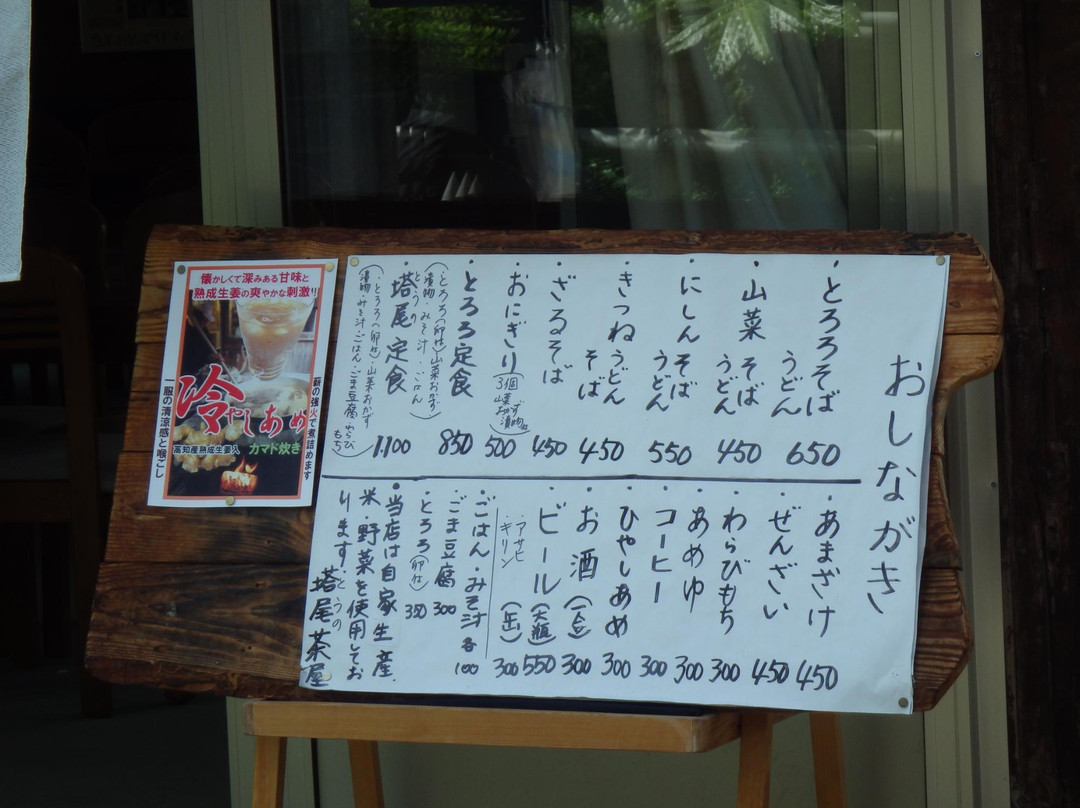 おしながき
・とろろそば うどん 650
・山菜そば うどん 450
・にしんそば うどん 550
・きつねうどん そば 450
・ざるそば 450
・おにぎり(3個 山菜おかず 漬物) 500
・とろろ定食 850
(とろろ(卵付)山菜おかず
漬物・みそ汁・ごはん)
・塔尾定食 1,100
とうの
(とろろ(卵付)・山菜おかず
漬物・みそ汁・ごはん・ごま豆腐・わらびもち)
・あまざけ 450
・ぜんざい 450
・わらびもち 300
・あめゆ 300
・コーヒー 300
・ひやしあめ 300
・お酒(一合) 300
・ビール(大瓶) 550
・アサヒ
・キリン (缶) 300
・ごはん・みそ汁 各100
・ごま豆腐 300
・とろろ(卵付) 350
●当店は自家生産
米・野菜を使用してお
ります
とうの
塔尾茶屋
懐かしくて深みある甘味と
熟成生姜の爽やかな刺激!!
薪の強火で煮詰めます
冷やしあめ
高知産熟成生姜入 カマド炊き
一服の清涼感と喉ごし